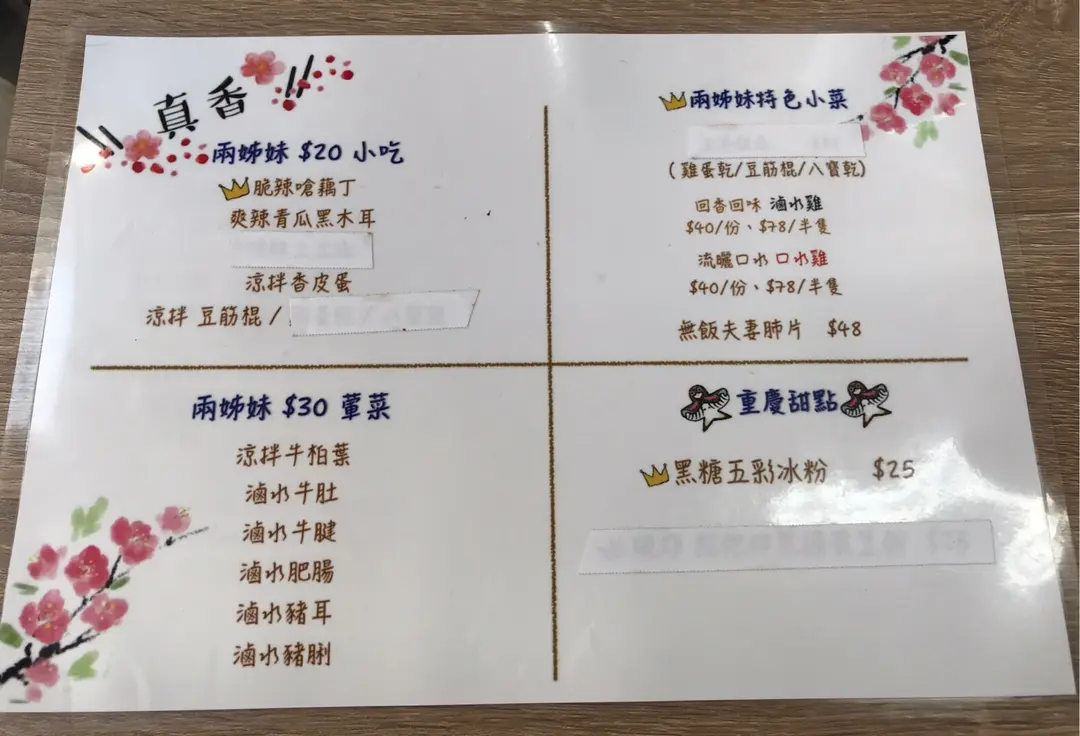 \\ 真香 //
兩姊妹 $20 小吃
脆辣嗆藕丁
爽辣青瓜黑木耳
涼拌香皮蛋
涼拌 豆筋棍 /
兩姊妹特色小菜
(雞蛋乾/豆筋棍/八寶乾)
回香回味 滷水雞
$40/份、$78/半隻
流曬口水 口水雞
$40/份、$78/半隻
無飯夫妻肺片 $48
兩姊妹 $30 葷菜
涼拌牛柏葉
滷水牛肚
滷水牛腱
滷水肥腸
滷水豬耳
滷水豬脷
重慶甜點
黑糖五彩冰粉 $25